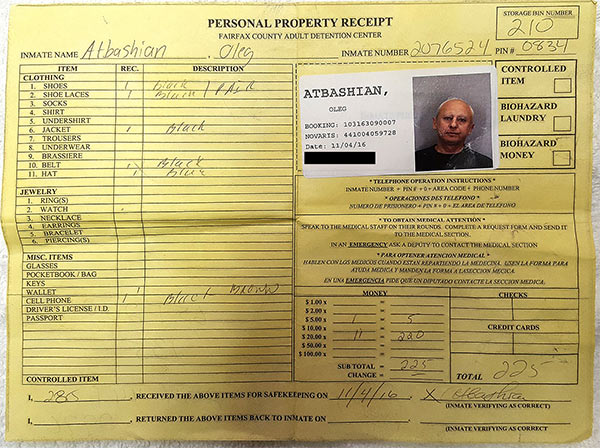 PERSONAL PROPERTY RECEIPT
FAIRFAX COUNTY ADULT DETENTION CENTER
STORAGE BIN NUMBER
210
INMATE NAME Atbashian Oleg
INMATE NUMBER 2076524 PIN # 0834
ITEM REC. DESCRIPTION
CLOTHING
1. SHOES 1 Black 1 PAIR
2. SHOE LACES 1 Black
3. SOCKS
4. SHIRT
5. UNDERSHIRT
6. JACKET 1 Black
7. TROUSERS
8. UNDERWEAR
9. BRASSIERE
10. BELT 1 Black
11. HAT 1 Blue
JEWELRY
1. RING(S)
2. WATCH
3. NECKLACE
4. EARRINGS
5. BRACELET
6. PIERCING(S)
MISC. ITEMS
GLASSES
POCKETBOOK / BAG
KEYS
WALLET 1 Brown
CELL PHONE 1 Black
DRIVER'S LICENSE / I.D.
PASSPORT
CONTROLLED ITEM
ATBASHIAN,
OLEG
BOOKING: 103163090007
NOVARIS: 441004059728
Date: 11/04/16
CONTROLLED
ITEM
BIOHAZARD
LAUNDRY
BIOHAZARD
MONEY
* TELEPHONE OPERATION INSTRUCTIONS *
INMATE NUMBER + PIN # + 0 + AREA CODE + PHONE NUMBER
* OPERACIONES DES TELEFONO *
NUMERO DE PRISIONERO + PIN # + 0 + EL AREA DE TELEFONO
* TO OBTAIN MEDICAL ATTENTION *
SPEAK TO THE MEDICAL STAFF ON THEIR ROUNDS. COMPLETE A REQUEST FORM AND SEND IT
TO THE MEDICAL SECTION.
IN AN EMERGENCY ASK A DEPUTY TO CONTACT THE MEDICAL SECTION
* PARA OPTENER ATENCION MEDICAL *
HABLEN CON LOS MEDICOS CUANDO ESTAN REPARTIENDO LA MEDICINA. USEN LA FORMA PARA
AYUDA MEDICA Y MANDEN LA FORMA A LA SECCION MEDICA.
EN UNA EMERGENCIA PIDE QUE UN DIPUTADO CONTACTE LA SECCION MEDICA.
MONEY
$ 1.00 x
$ 5.00 x 1 = 5
$ 10.00 x
$ 20.00 x 11 = 220
$ 50.00 x
$ 100.00 x
SUB TOTAL = 225
CHANGE =
CHECKS
CREDIT CARDS
TOTAL 225
I, 285, RECEIVED THE ABOVE ITEMS FOR SAFEKEEPING ON 11/4/16 X Atbashian
(INMATE VERIFYING AS CORRECT)
I, RETURNED THE ABOVE ITEMS BACK TO INMATE ON
(INMATE VERIFYING AS CORRECT)